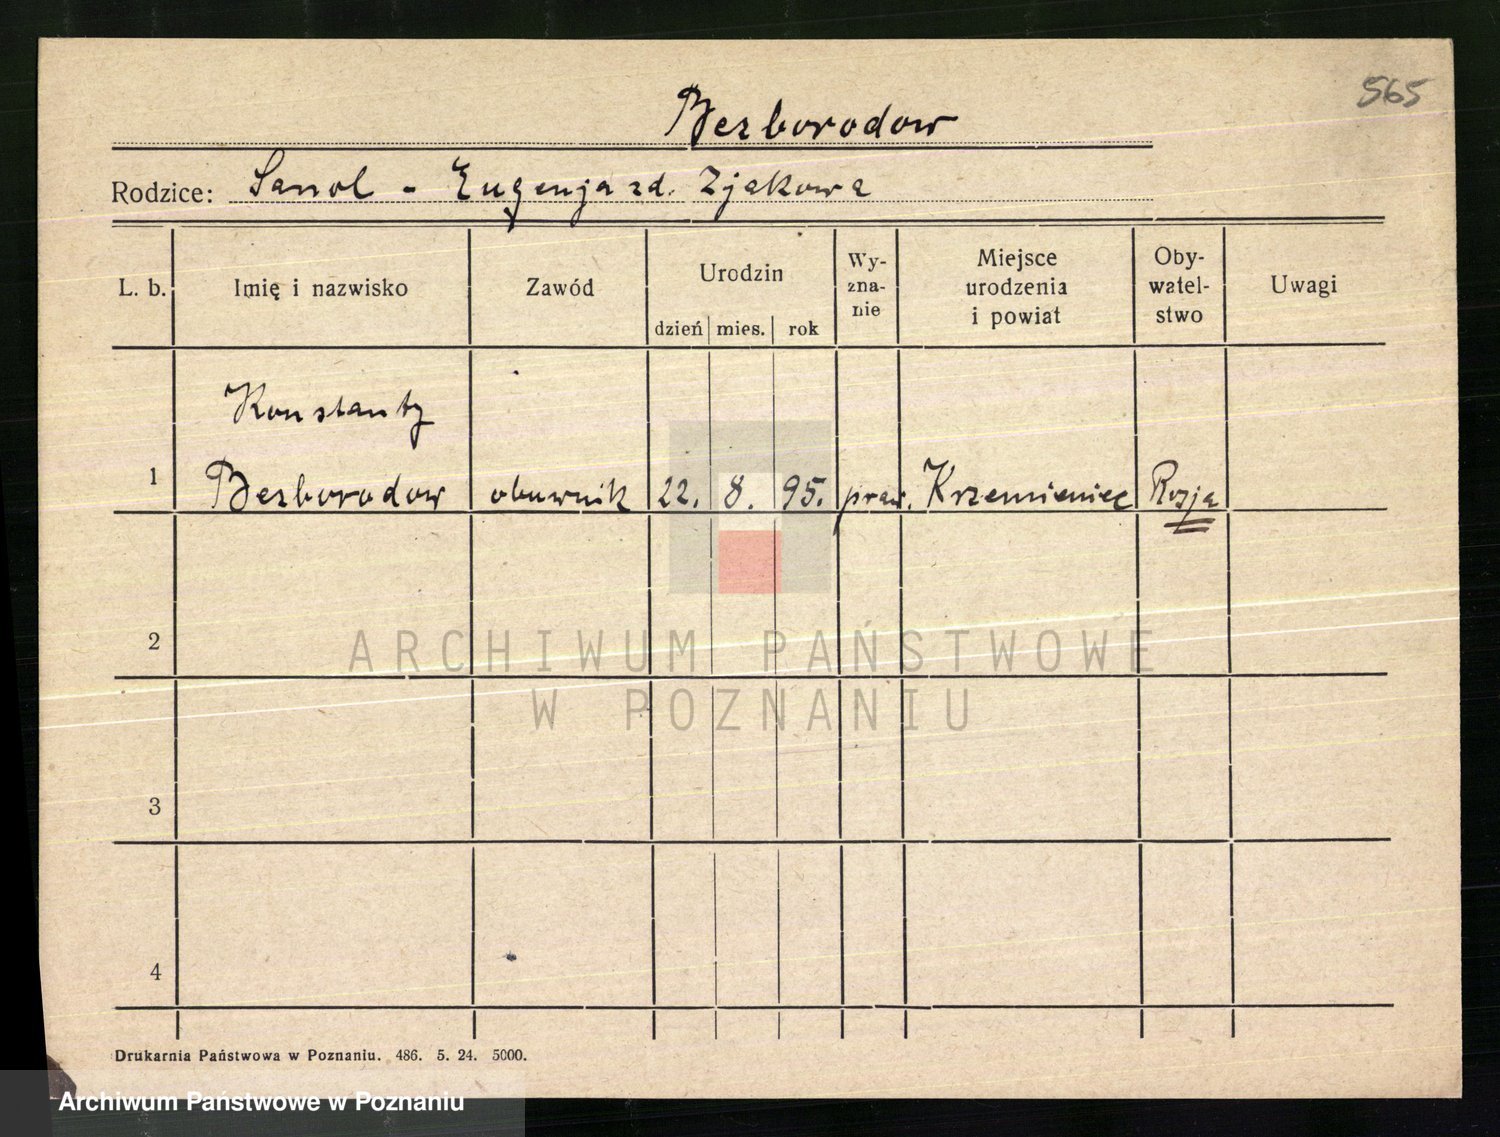 565
Bezborodow
Rodzice: - Eugenja zd. Zjakowa
L. b. Imię i nazwisko Zawód Urodzin dzień mies. rok Wy-zna-nie Miejsce urodzenia i powiat Oby-watel-stwo Uwagi
Konstanty
1 Bezborodow obuwnik 22. 8. 95. praw. Krzemieniec Rosja
2
ARCHIWUM PAŃSTWOWE
W POZNANIU
3
4
Drukarnia Państwowa w Poznaniu. 486. 5. 24. 5000.
Archiwum Państwowe w Poznaniu